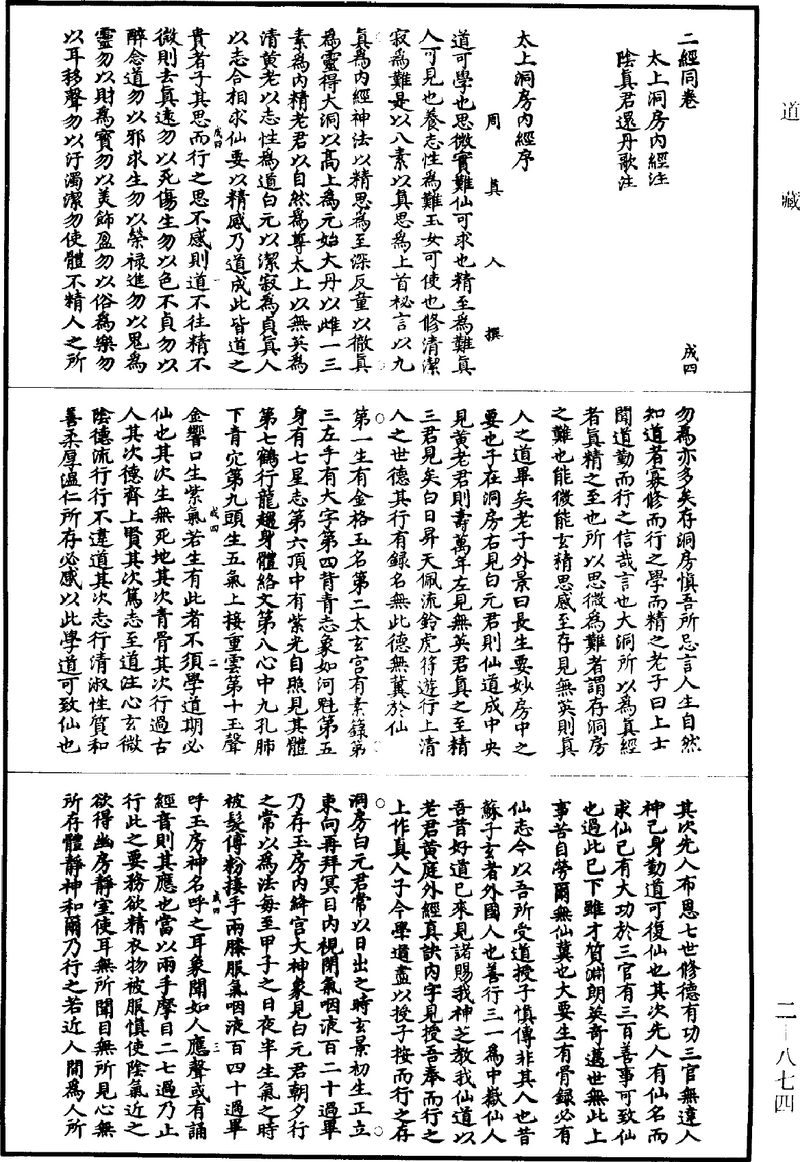 道藏
二經同卷
成四
太上洞房內經注
陰真君還丹歌注
太上洞房內經序
周真人撰
道可學也思微實難仙可求也精至為難真
人可見也養志性為難玉女可使也修清潔
寂為難是以八素以真思為上首秘言以九
真為內經神法以精思為至深反童以徹真
為靈得大洞以高上為元始大丹以雌一三
素為內精老君以自然為尊太上以無英為
清黃老以志性為道白元以潔寂為貞真人
以志合相求仙要以精感乃道成此皆道之
成四
一
貴者子其思而行之思不感則道不往精不
微則去真遠勿以死傷生勿以色不貞勿以
醉念道勿以邪求生勿以榮祿進勿以鬼為
靈勿以財為寶勿以美飾盈勿以俗為樂勿
以耳移聲勿以汙濁潔勿使體不精人之所
勿為亦多矣存洞房慎吾所忌言人生自然
知道若寡修而行之學而精之老子曰上士
聞道勤而行之信哉言也大洞所以為真經
者真精之至也所以思微為難者謂存洞房
之難也能微能玄精思感至存見無英則真
人之道畢矣老子外景曰長生要妙房中之
要也子在洞房右見白元君則仙道成中央
見黃老君則壽萬年左見無英君真之至精
三君見矣白日昇天佩流鈴虎符遊行上清
人之世德其行有錄名無此德無冀於仙
第一生有金格玉名第二太玄宮有素籙第
三左手有大字第四背青志象如河魁第五
身有七星志第六頂中有紫光自照見其體
第七鶴行龍趨身體絡文第八心中九孔肺
下青穴第九頭生五氣上接重雲第十玉聲
成四
二
金響口生紫氣若生有此者不須學道期必
仙也其次生無死地其次青骨其次行過古
人其次德齊上賢其次篤志至道注心玄微
陰德流行行不違道其次志行清淑性質和
善柔厚溫仁所存必感以此學道可致仙也
其次先人布恩七世修德有功三官無違人
神己身勤道可復仙也其次先人有仙名而
求仙已有大功於三官有三百善事可致仙
也過此已下雖才質淵朗英奇邁世無此上
事苦自勞爾無仙冀也大要生有骨錄必有
仙志今以吾所受道授子慎傳非其人也昔
蘇子玄者外國人也善行三一為中嶽仙人
吾昔好道已來見諸賜我神芝教我仙道以
老君黃庭外經真訣內字見授吾奉而行之
上作真人子今學道盡以授子按而行之存
洞房白元君常以日出之時玄景初生正立
東向再拜冥目內視閉氣咽液百二十過畢
乃存玉房內絳宮大神象見白元君朝夕行
之常以為法每至甲子之日夜半生氣之時
被髮傅粉接手兩膝服氣咽液百四十過畢
成四
三
呼玉房神名呼之耳象聞如人應聲或有誦
經音則其應也當以兩手摩目二七過乃止
行此之要務欲精衣物被服慎使陰氣近之
欲得幽房靜室使耳無所聞目無所見心無
所存體靜神和爾乃行之若近人間為人所
二一八七四